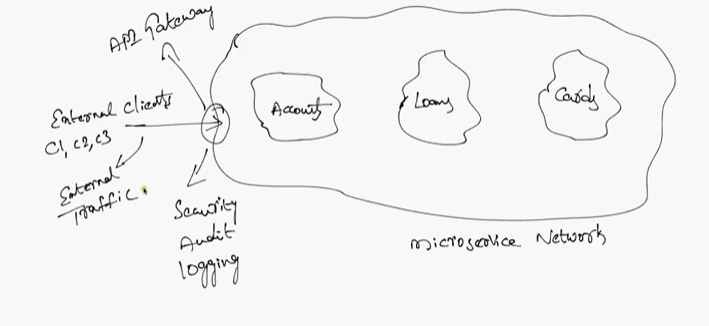 API Gateway
External Clients
C1, C2, C3
External
Traffic.
Security
Audit
logging
Accounts
Loans
Cards
Microservice Network